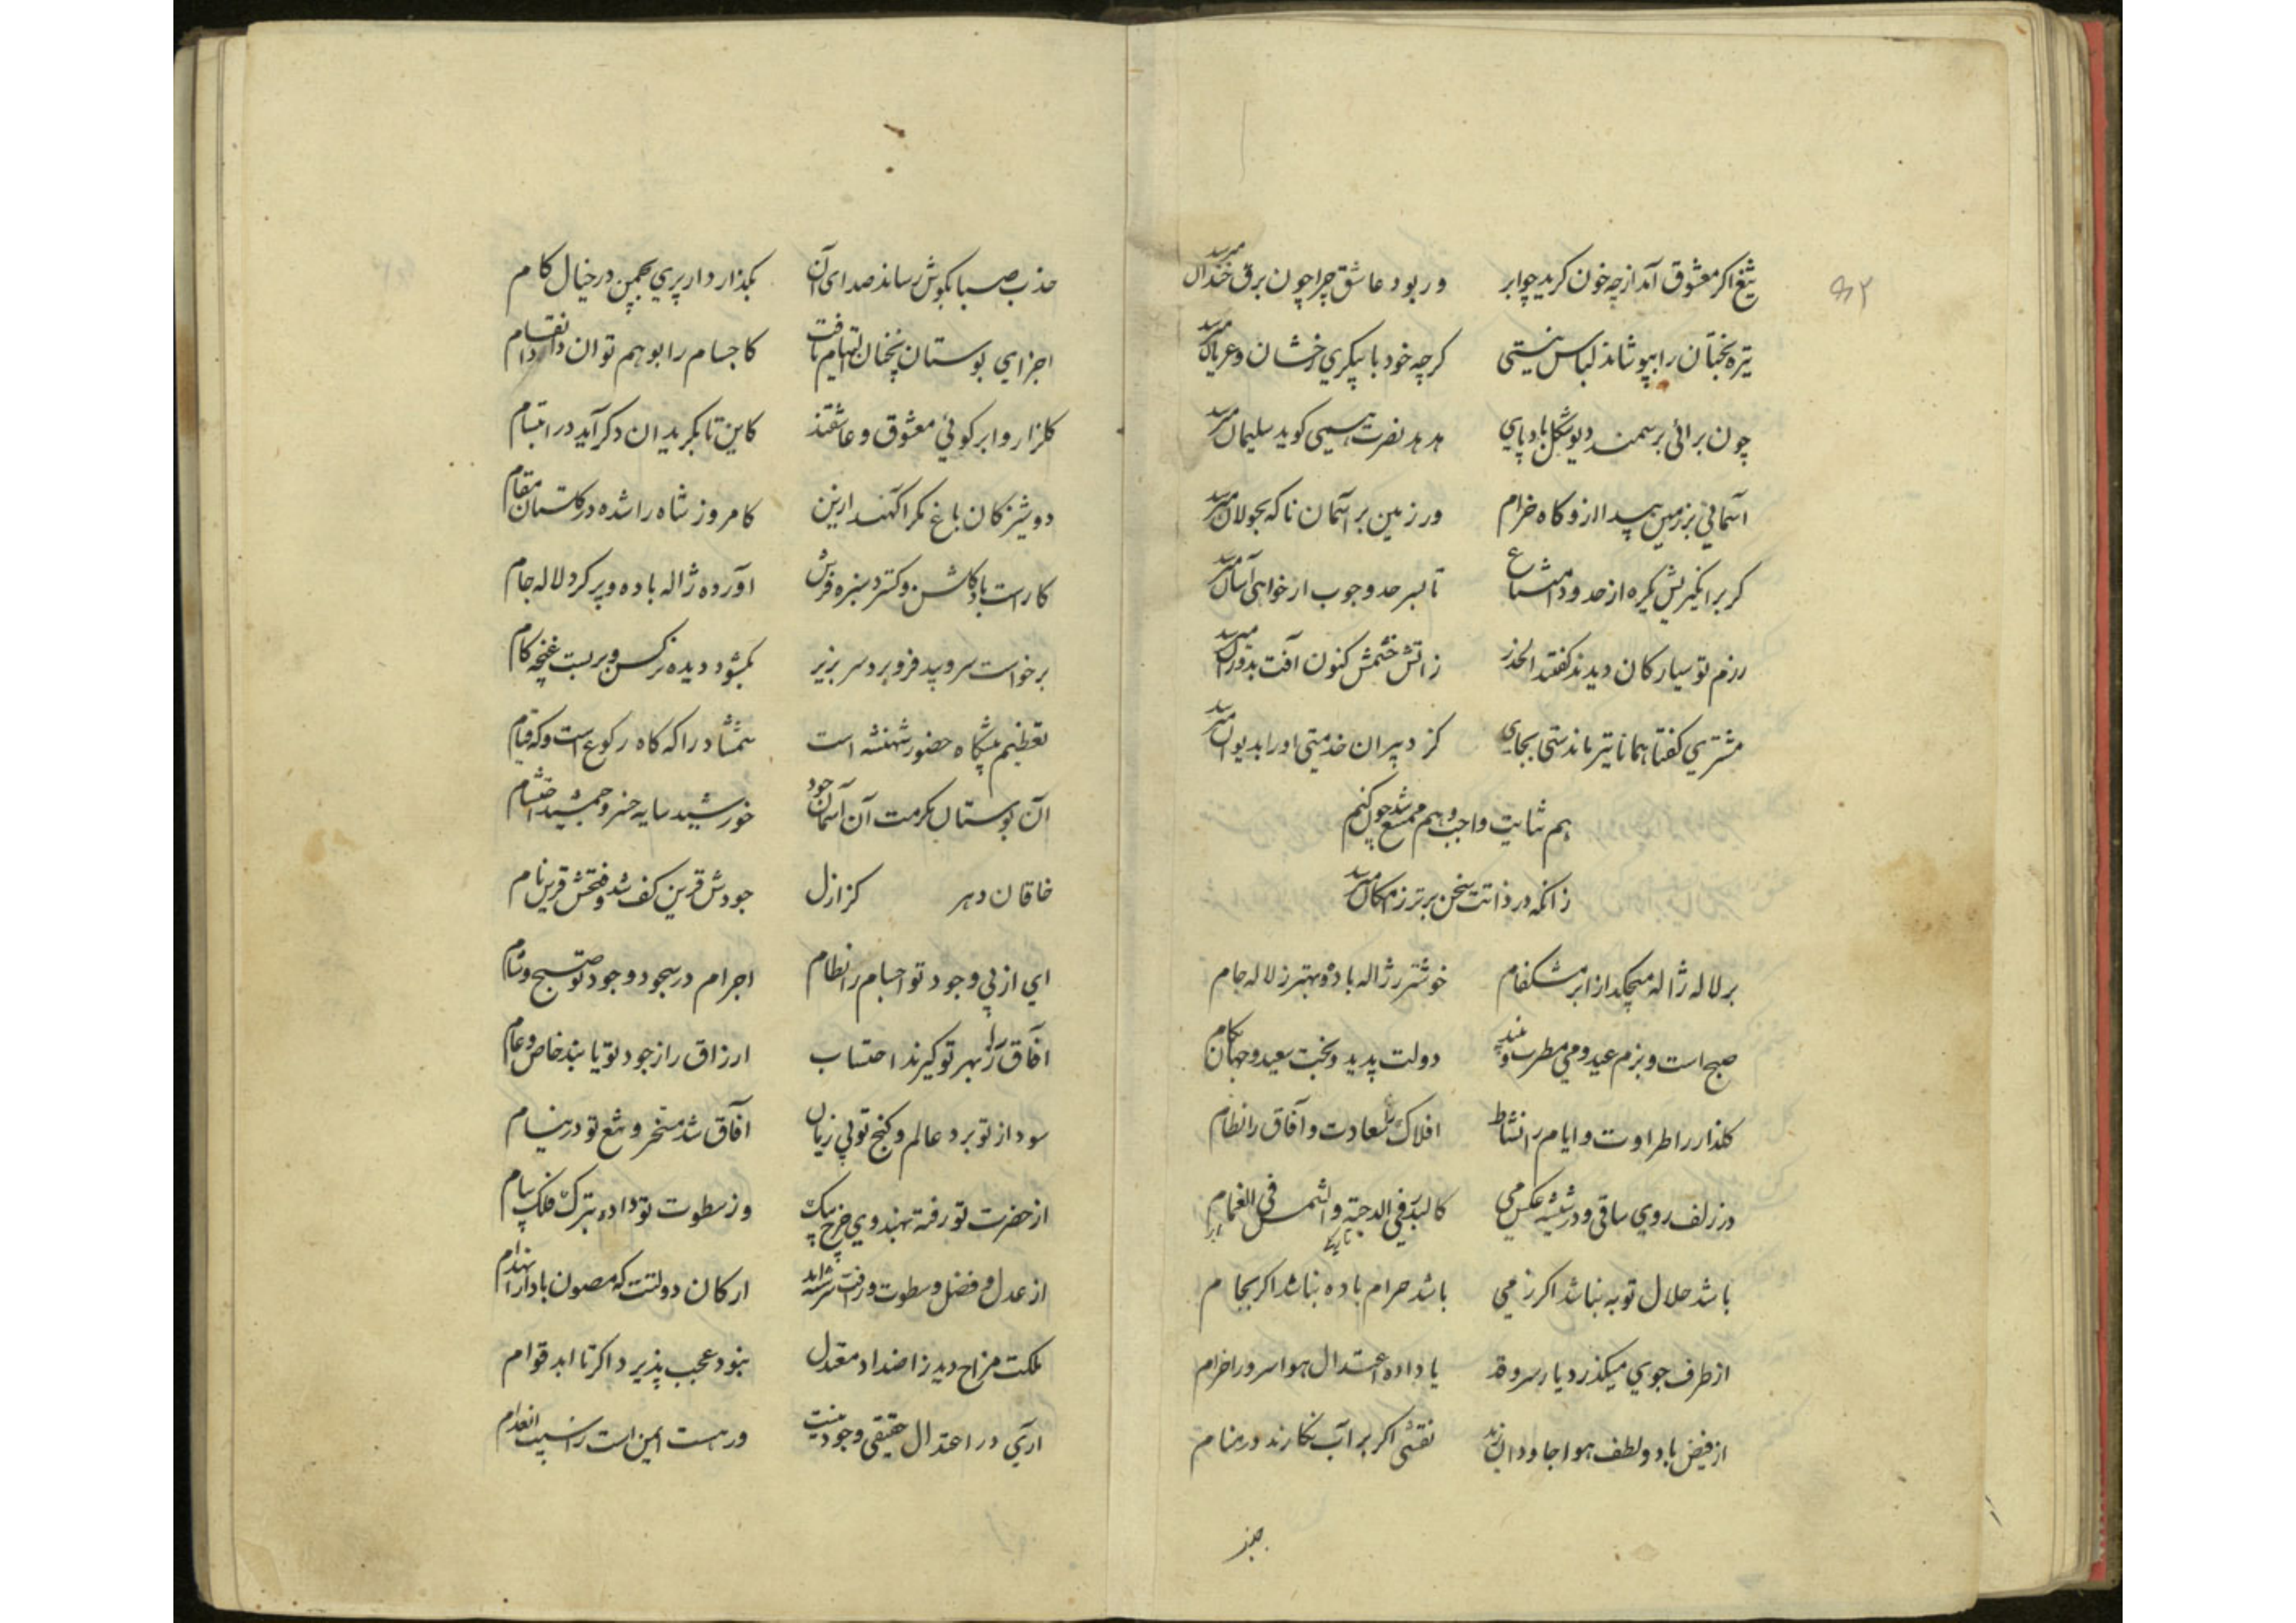 ۹۲
تیغ اکر معشوق آمد از چه خون کرید چو ابر ور بود عاشق چرا چون برق خندان میرسد
تیره بختان را بپوشاند لباس نیستی کرچه خود با پیکری رخشان و عریان میرسد
چون برائی بر سمند دیو شکل باد پای هدهد نصرت همیی کوید سلیمان میرسد
آسمانی بر زمین پیدا از و کاه خرام ور زمین بر آسمان ناکه بجولان میرسد
کر برانکیزیش یکره از حدود امتناع تا بسر حد وجوب ار خواهی آسان میرسد
رزم تو سیارکان دیدند کفتند الحذر ز آتش خشمش کنون آفت بدوران میرسد
مشتری کفتا همانا تیر ماندستی بجای کز دبیران خدمتی او را بدیوان میرسد
هم ثنایت واجب و هم ممتنع شد چون کنم
زانکه در ذاتت سخن برتر ز امکان میرسد
بر لاله ژاله میچکد از ابر مشکفام خوشتر ز ژاله باده و بهتر ز لاله جام
صبح است و بزم عید و می و مطرب و دولت پدید و بخت سعید و جهان بکام
کلذار را طراوت و ایام را نشاط افلاک را سعادت و آفاق را نظام
در زلف روی ساقی و در شیشه عکس می کالبدر فی الدجنة والشمس فی الغمام
باشد حلال توبه نباشد اکر ز می باشد حرام باده نباشد اکر بجام
از طرف جوی میکذرد یار سرو قد یا داده اعتدال هوا سرو را خرام
از فیض باد و لطف هوا جاودان زید نقشی اکر بر آب نکارند در منام
جذب صبا بکوش رساند صدای آن بکذار دار پری بچمن در خیال کام
اجزای بوستان نچنان التیام یافت کاجسام را بوهم توان داد انقسام
کلزار و ابر کوئی معشوق و عاشقند کاین تا بکرید ان دکر آید در ابتسام
دوشیزکان باغ مکر آکهند ازین کامروز شاه را شده در کلستان مقام
کاراست باد کلشن و کسترد سبزه فرش آورده ژاله باده و پر کرد لاله جام
برخواست سرو و بید فرو برد سر بزیر بکشود دیده نرکس و بربست غنچه کام
تعظیم پیشکاه حضور شهنشه است شمشاد را که کاه رکوع است و که قیام
آن بوستان مکرمت آن آسمان جود خورشید سایه خسرو جمشید احتشام
خاقان دهر کز ازل جودش قرین کف شد و فتحش قرین نام
ای از پی وجود تو اجسام را نظام اجرام در سجود وجود تو صبح و شام
آفاق را ز بهر تو کیرند احتساب ارزاق را ز جود تو یابند خاص و عام
سود از تو برد عالم و کنج تو بی زیان آفاق شد مسخر و تیغ تو در نیام
از حضرت تو رفته بهندوی چرخ پیک وز سطوت تو داده بترک فلک پیام
از عدل و فضل و سطوت و رافت سرشته اند ارکان دولتت که مصون باد از انهدام
ملکت مزاج دید ز اضداد معتدل نبود عجب پذیرد اکر تا ابد قوام
آری در اعتدال حقیقی وجود نیست ور هست ایمن است ز آسیب انعدام